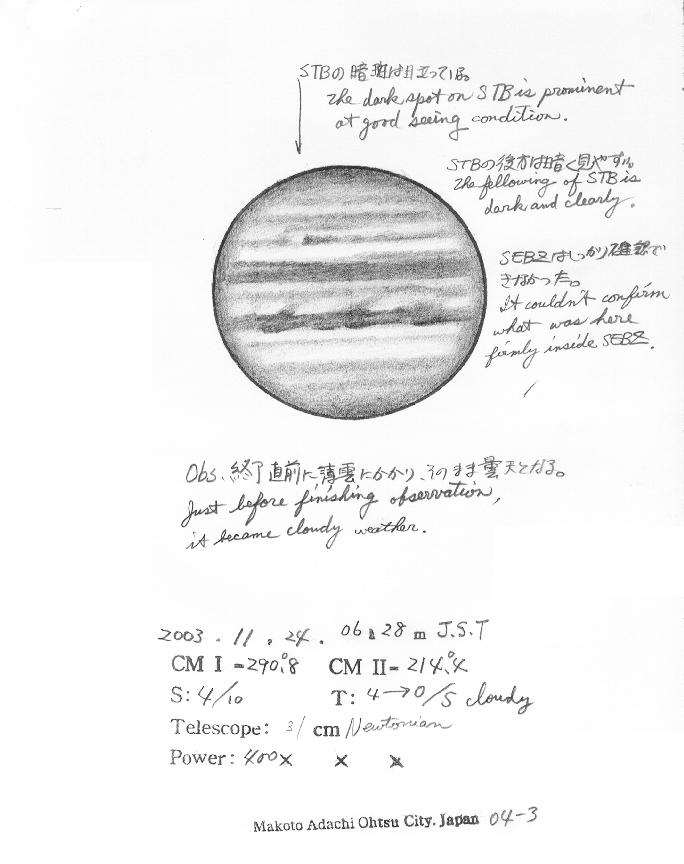 STBの暗斑は目立っている。
The dark spot on STB is prominent
at good seeing condition.
STBの後方は暗く見やすい。
The fellowing of STB is
dark and clearly.
SEBZはしっかり確認で
きなかった。
It couldn't confirm
what was here
firmly inside SEBZ.
Obs. 終了直前に薄雲にかかり、そのまま曇天となる。
Just before finishing observation,
it became cloudy weather.
2003. 11. 24. 06h 28m J.S.T
CM I = 290.°8 CM II = 214.°4
S: 4/10 T: 4→0/5 cloudy
Telescope: 31 cm Newtonian
Power: 400x x x
Makoto Adachi Ohtsu City. Japan 04-3